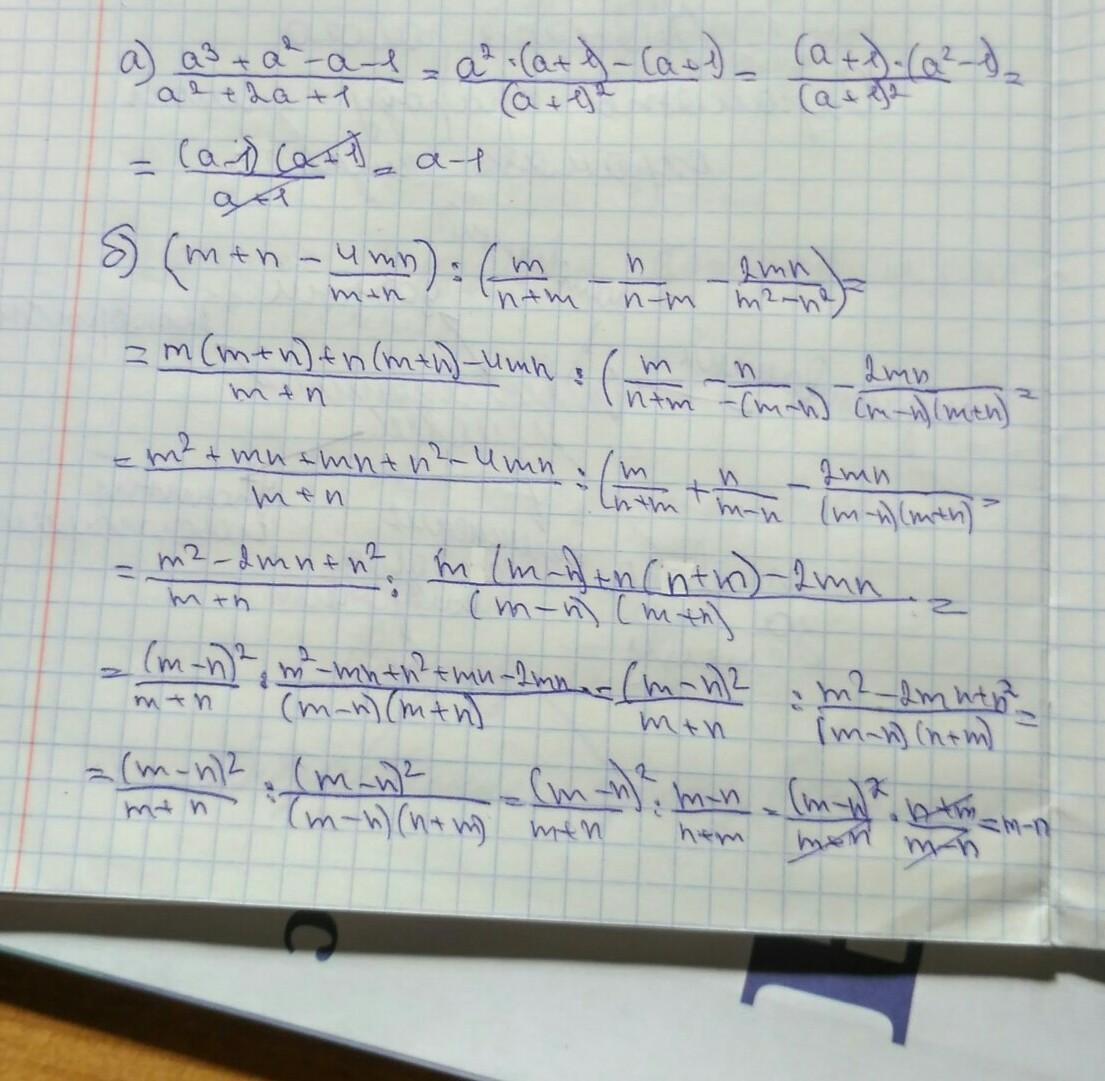 а) (a³ + a² - a - 1)/(a² + 2a + 1) = (a² · (a + 1) - (a + 1))/(a + 1)² = ((a + 1) · (a² - 1))/(a + 1)² =
= ((a - 1)(a + 1))/(a + 1) = a - 1
б) (m + n - 4mn/(m + n)) : (m/(n + m) - n/(n - m) - 2mn/(m² - n²)) =
= (m(m + n) + n(m + n) - 4mn)/(m + n) : (m/(n + m) - n/(-(m - n)) - 2mn/((m - n)(m + n)) =
= (m² + mn + mn + n² - 4mn)/(m + n) : (m/(n + m) + n/(m - n) - 2mn/((m - n)(m + n)) =
= (m² - 2mn + n²)/(m + n) : (m(m - n) + n(n + m) - 2mn)/((m - n)(m + n)) =
= (m - n)²/(m + n) : (m² - mn + n² + mn - 2mn)/((m - n)(m + n)) = (m - n)²/(m + n) : (m² - 2mn + n²)/((m - n)(n + m)) =
= (m - n)²/(m + n) : (m - n)²/((m - n)(n + m)) = (m - n)²/(m + n) : (m - n)/(n + m) = (m - n)²/(m + n) · (n + m)/(m - n) = m - n
с